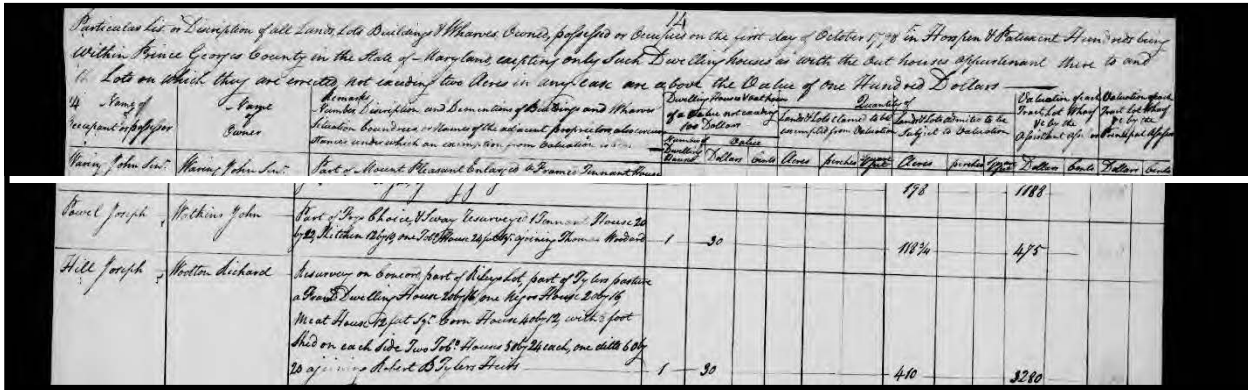 14
Particular List or Discription of all Lands, Lots Buildings & Wharves Owned, possessed or Occupied on the first day of October 1798 in Horspen & Patuxent Hundreds being
Within Prince Georges County in the State of Maryland, excepting only Such Dwelling houses as with the Out houses appurtenant there to and
the Lots on which they are errected, not exceeding two Acres in any Case are above the Value of one Hundred Dollars
14 Name of Occupant or possessor
Name of Owner
Remarks
Number Discription and Dementions of Buildings and Wharves
Situation Boundries or Names of the adjacent proprietors also
Names under which an exemption from Valuation
Dwelling Houses
of a Value not exceeding
100 Dollars
Number of Dwelling Houses
Value
Dollars Cents
Quantity of
Lands & Lots claimed to be exempted from Valuation
Acres perches Square feet
Lands & Lots admitted to be Subject to Valuation
Acres perches Square feet
Valuation of each Tract Lot Wharf &c by the Assistant Assr
Dollars Cents
Valuation of each Tract Lot Wharf &c by the Principal Assessr
Dollars Cents
Waring John Senr. Waring John Senr. Part of Mount Pleasant Enlarged a Framed Tennant House
198 1188
Powel Joseph Watkins John Part of Frys Choice, & Sway Resurveyed 1 Tennant House 20
by 22, Kitchen 12 by 14 one Tobo. House 24 feet Sqr. ajoining Thomas Woodard 1 30 118 3/4 475
Hill Joseph Wootton Richard Resurvey on Concord, part of Rileys Lot, part of Tylers pasture
a Framd Dwelling House 20 by 16, one Negro House 20 by 16,
Meat House 12 feet Sqr. Corn House 40 by 12, with foot
Shed on each Side Two Tobo. Houses 30 by 24 each, one ditto 60 by
20 ajoining Robert B Tylers Heirs 1 30 410 3280